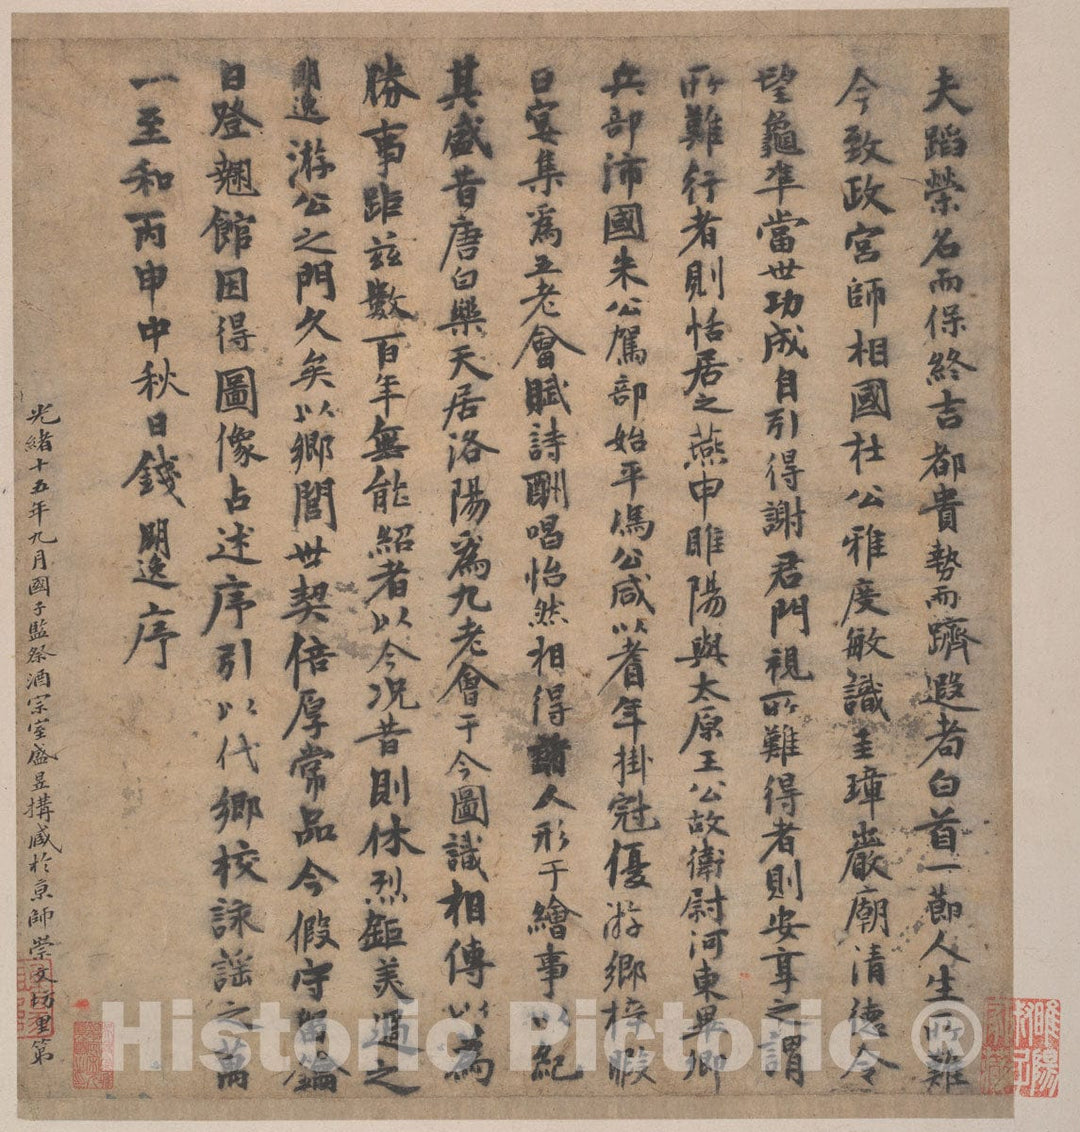 夫蹈榮名而保終吉都貴勢而躋遐耇白首一節人生所難
今致政宮師相國杜公雅度敏識圭璋巖廟清德令
望龜準當世功成自引得謝君門視所難得者則安享之謂
所難行者則恬居之燕申睢陽與太原王公故衛尉河東畢卿
兵部沛國朱公駕部始平馮公咸以耆年掛冠優游鄉梓暇
日宴集為五老會賦詩酬唱怡然相得諸人形于繪事以紀
其盛昔唐白樂天居洛陽為九老會于今圖識相傳以為
勝事距茲數百年無能紹者以今況昔則休烈鉅美過之
明逸游公之門久矣以鄉閭世契倍厚常品今假守留鑰
日登翹館因得圖像占述序引以代鄉校詠謠之萬
一至和丙申中秋日錢明逸序
光緒十五年九月國子監祭酒宗室盛昱搆藏於京師崇文坊里第
Historic Pictoric ®